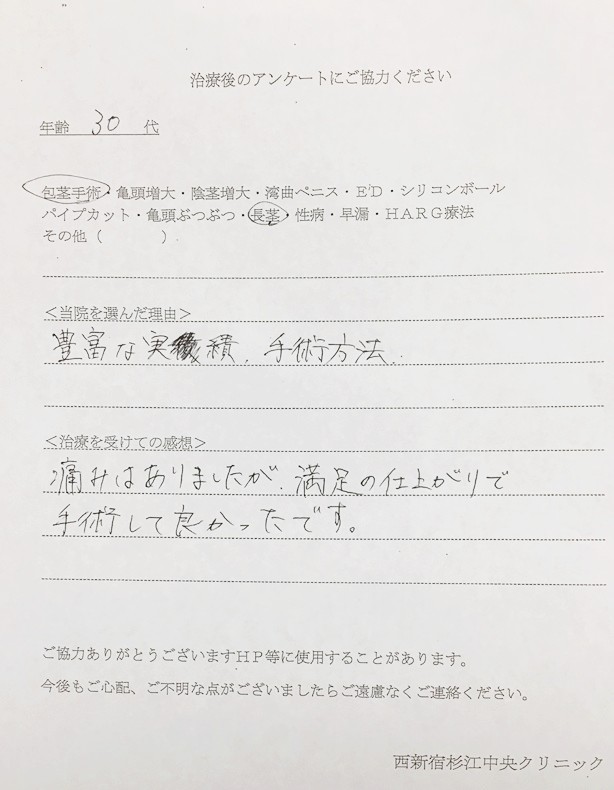 治療後のアンケートにご協力ください
年齢 30 代
包茎手術・亀頭増大・陰茎増大・湾曲ペニス・ED・シリコンボール
パイプカット・亀頭ぶつぶつ・長茎・性病・早漏・HARG療法
その他（　　　）
＜当院を選んだ理由＞
豊富な実績、手術方法
＜治療を受けての感想＞
痛みはありましたが、満足の仕上がりで
手術して良かったです。
ご協力ありがとうございますHP等に使用することがあります。
今後もご心配、ご不明な点がございましたらご遠慮なくご連絡ください。
西新宿杉江中央クリニック